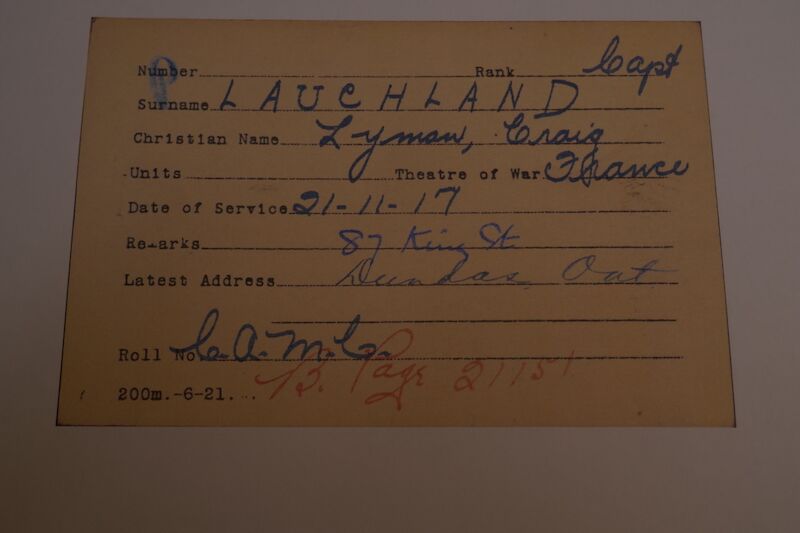 Number Rank Capt
Surname LAUCHLAND
Christian Name Lyman, Craig
Units Theatre of War France
Date of Service 21-11-17
Remarks 87 King St
Latest Address Dundas Ont
Roll No C.A.M.C.
B. Page 21151
200m.-6-21.